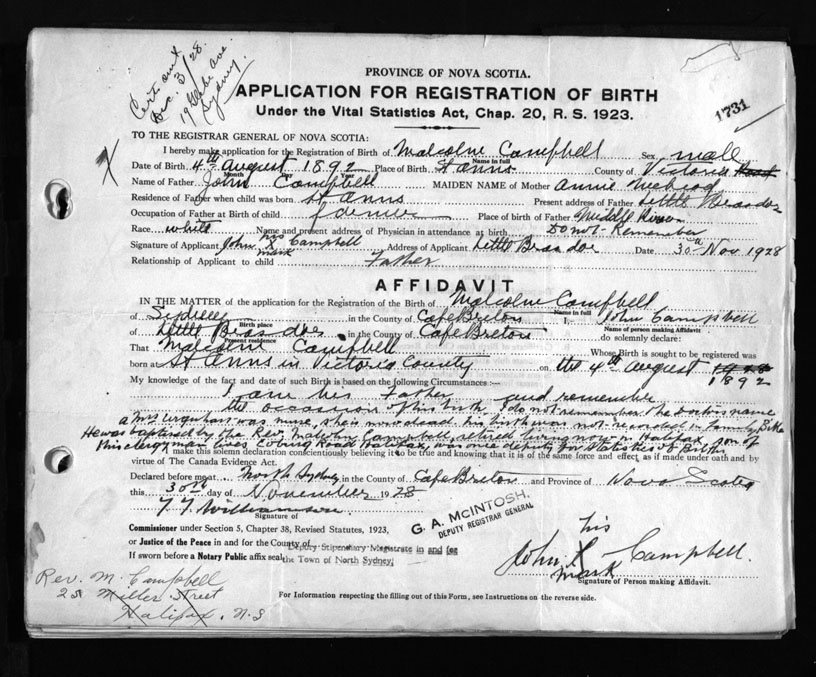 Cert. out
Dec. 3/28.
19 Glebe Ave.
Sydney.
1731
PROVINCE OF NOVA SCOTIA.
APPLICATION FOR REGISTRATION OF BIRTH
Under the Vital Statistics Act, Chap. 20, R. S. 1923.
TO THE REGISTRAR GENERAL OF NOVA SCOTIA:
I hereby make application for the Registration of Birth of Malcolm Campbell Sex male
Name in full
Date of Birth 4th August 1892 Place of Birth St Anns County of Victoria
Name of Father John Campbell MAIDEN NAME of Mother Annie McLeod
Residence of Father when child was born St Anns Present address of Father Little Bras dor
Occupation of Father at Birth of child farmer Place of birth of Father Middle River
Race white Name and present address of Physician in attendance at birth Do not Remember
Signature of Applicant John his X mark Campbell Address of Applicant Little Bras dor Date 30th Nov 1928
Relationship of Applicant to child Father
AFFIDAVIT
IN THE MATTER of the application for the Registration of the Birth of Malcolm Campbell
Name in full
of Sydney in the County of Cape Breton I, John Campbell
Birth place Name of person making Affidavit
of Little Bras dor in the County of Cape Breton do solemnly declare:
Present residence
That Malcolm Campbell Whose Birth is sought to be registered was
born at St Anns in Victoria County on the 4th August 1928 1892
My knowledge of the fact and date of such Birth is based on the following Circumstances:—
I am his Father and remember
the occasion of his birth, I do not remember the Doctors name
a Mrs Urquhart was nurse, she is now dead. his birth was not recorded in Family Bible
He was baptized by the Rev. Malcolm Campbell, retired living now in Halifax, son of
this clergyman lives Coburg Road Halifax, was once deputy for Statistics of Births
make this solemn declaration conscientiously believing it to be true and knowing that it is of the same force and effect as if made under oath and by
virtue of The Canada Evidence Act.
Declared before me at North Sydney in the County of Cape Breton and Province of Nova Scotia
this 30th day of November 1928
Williamson
Signature of
G. A. McINTOSH,
DEPUTY REGISTRAR GENERAL
Commissioner under Section 5, Chapter 38, Revised Statutes, 1923,
or Justice of the Peace in and for the County of
Deputy Stipendiary Magistrate in and for
If sworn before a Notary Public affix seal.
the Town of North Sydney,
John his X mark Campbell.
Signature of Person making Affidavit.
Rev. M. Campbell
25 Miller Street
Halifax, N.S
For Information respecting the filling out of this Form, see Instructions on the reverse side.